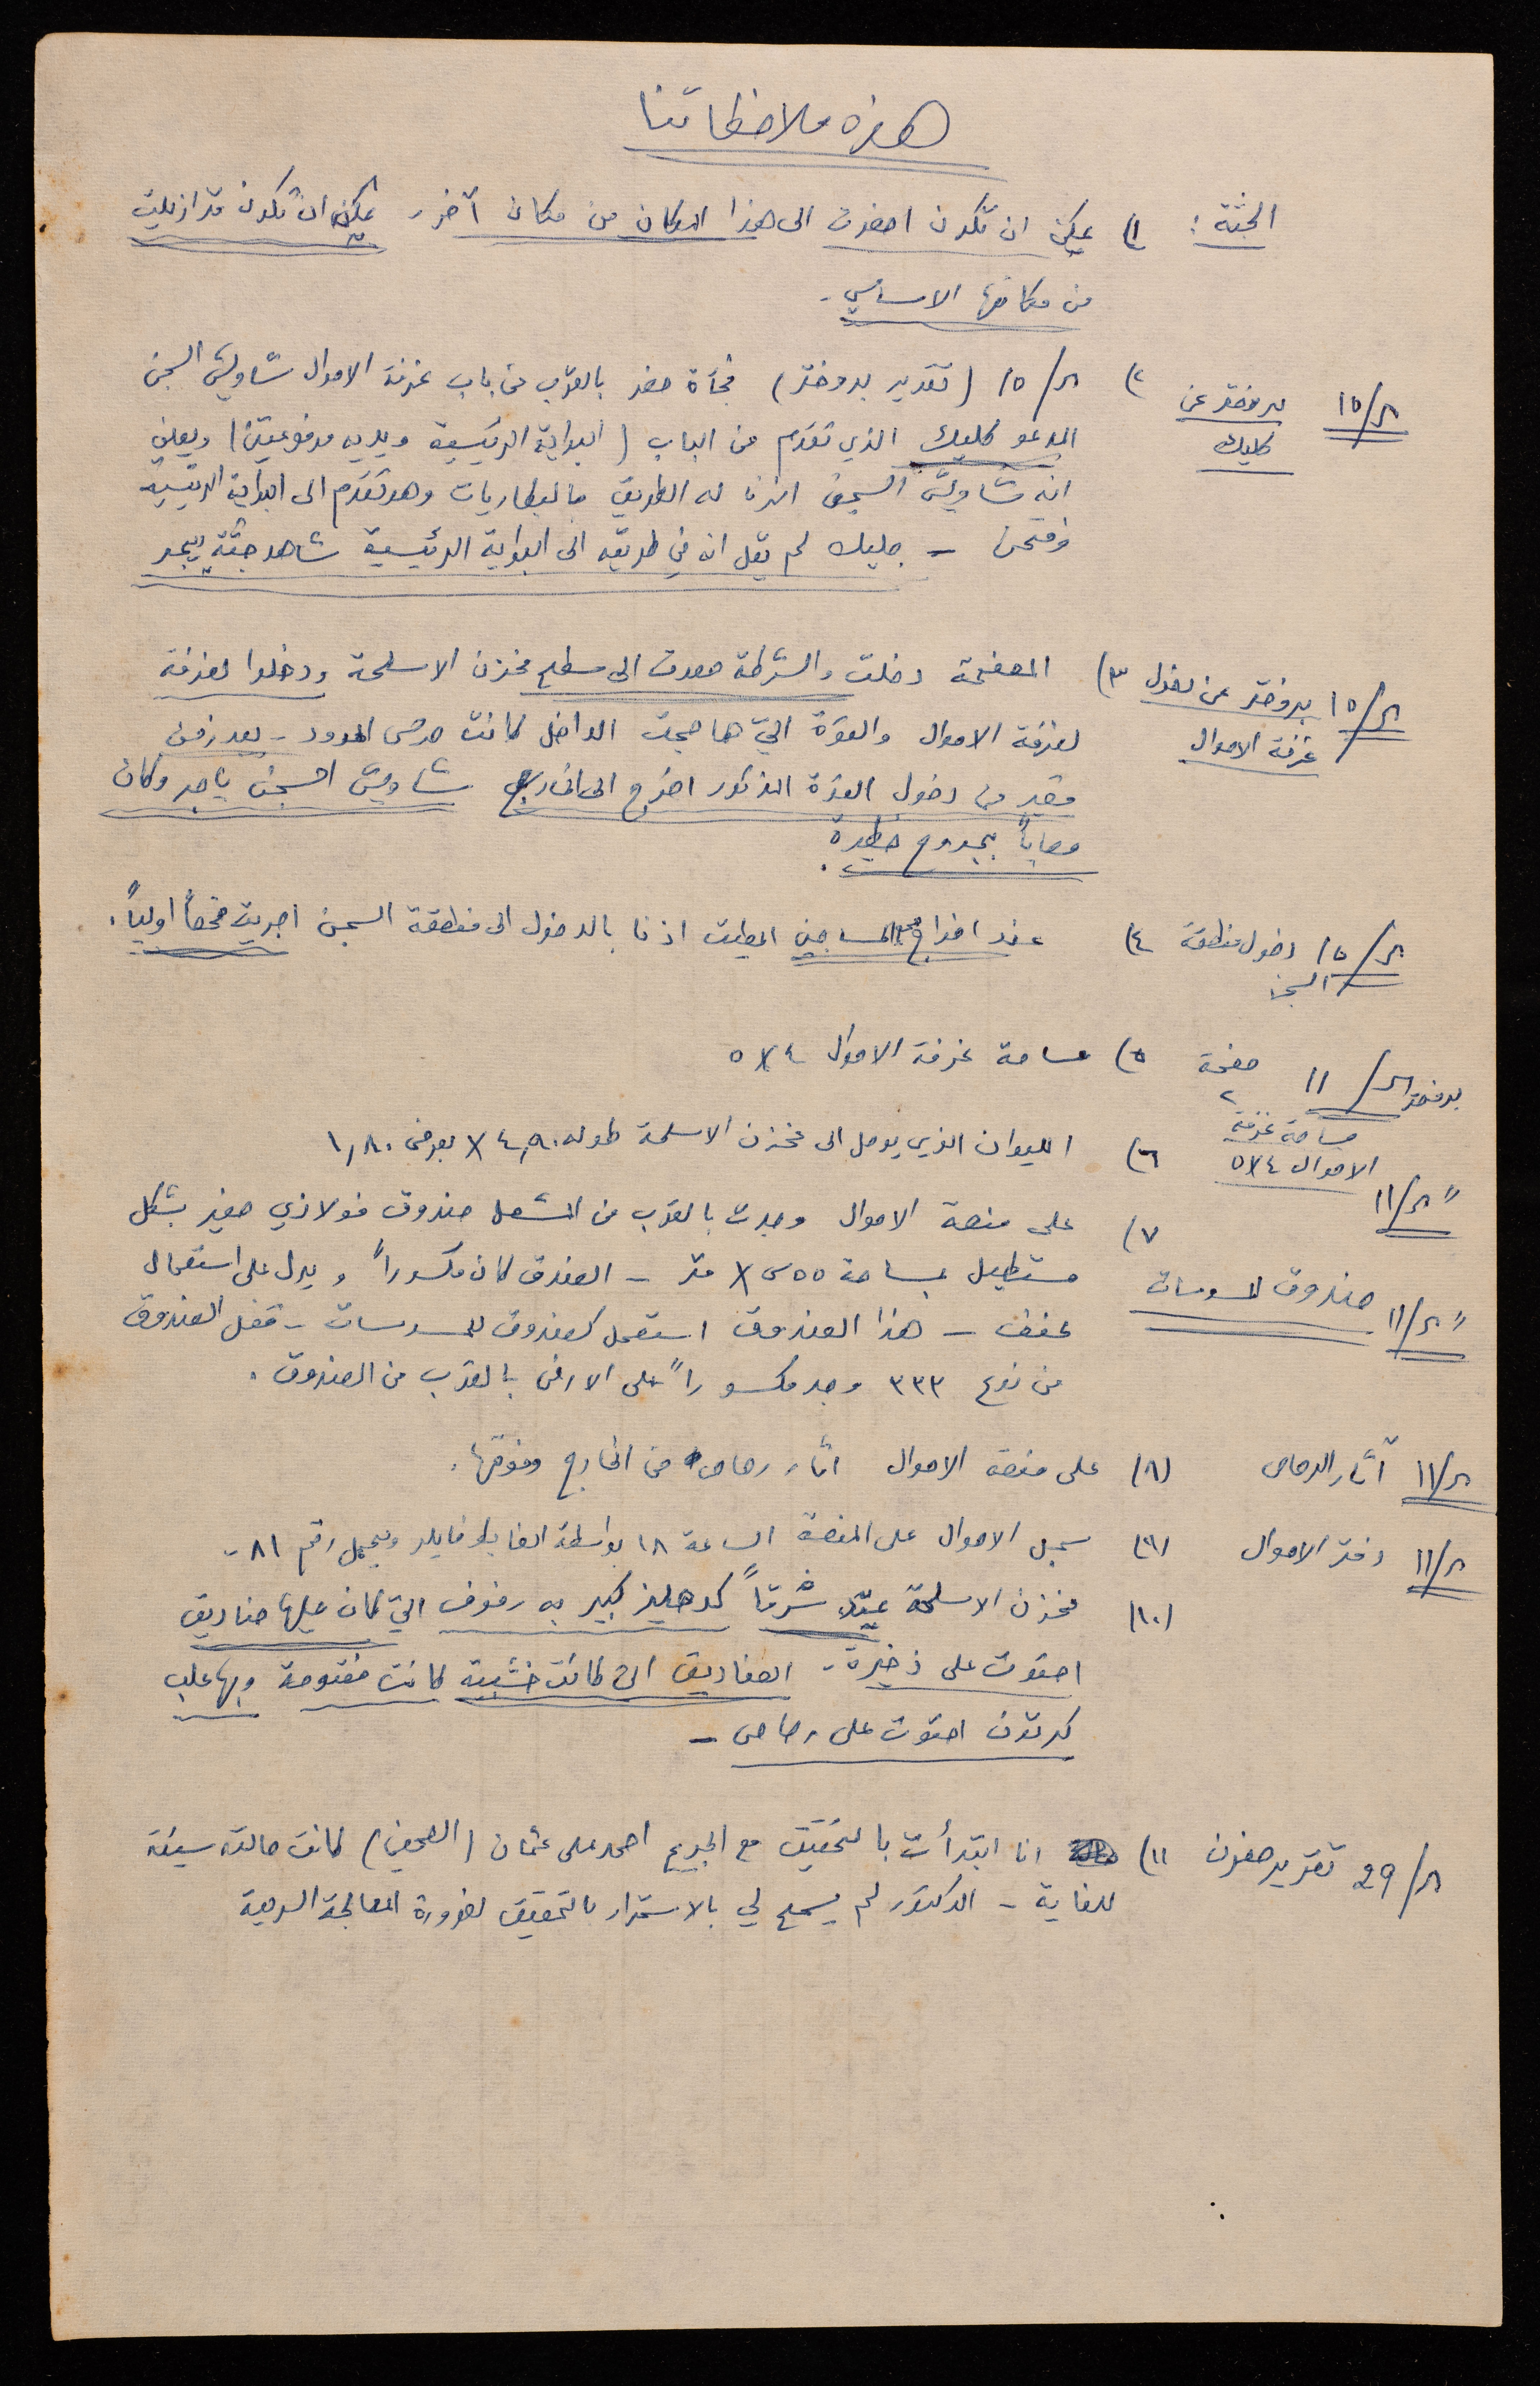 هذه ملاحظاتنا
الجثة: ١) يمكن ان تكون احضرت الى هذا المكان من مكان آخر، يمكن ان تكون قد ازيلت
من مكانها الاساسي -
١٥/ת بروختر عن كليك ٢) ת/١٥ (تقرير بروختر) فجأة حضر بالقرب من باب غرفة الاموال شاويش السجن
المدعو كليك الذي تقدم من الباب (البوابة الرئيسية ويديه مرفوعتين) ويعلن
انه شاويش السجن انرنا له الطريق بالبطاريات وهو تقدم الى البوابة الرئيسية
وفتحن - جليك لم يقل انه في طريقه الى البوابة الرئيسية شاهد جثة يجبر
ת/١٥ بروختر عن دخول غرفة الاموال ٣) المصفحة دخلت والشرطة صعدت الى سطح مخزن الاسلحة ودخلوا لغرفة
لغرفة الاموال والقوة التي هاجمت الداخل كانت حرس الحدود - بعد زمن
قصير من دخول القوة المذكور اخرج الى الخارج شاويش السجن ياجر وكان
مصاباً بجروح خطيرة.
ת/١٥ دخول منطقة السجن ٤) عند اخراج المساجين اعطيت اذنا بالدخول الى منطقة السجن اجريت فحصاً اولياً.
بروختر ת/١١ صفحة ٢ ٥) مساحة غرفة الاموال ٤×٥
مساحة غرفة
الاموال ٤×٥
״ ת/١١ ٦) الليوان الذي يوصل الى مخزن الاسلحة طوله ٤,٨٠ × بعرض ١,٨٠
٧) على منصة الاموال وجدت بالقرب من المشعل صندوق فولاذي صغير بشكل
״ ת/١١ صندوق المسدسات مستطيل بمساحة ٥٥س × متر - الصندوق كان مكسوراً ويدل على استعمال
عنف - هذا الصندوق استعمل كصندوق للمسدسات - قفل الصندوق
من نوع ٣٣٣ وجد مكسوراً على الارض بالقرب من الصندوق.
ת/١١ آثار الرصاص ٨) على منصة الاموال اثار رصاص من الخارج وفوقها.
ת/١١ دفتر الاموال ٩) سجل الاموال على المنصة الساعة ١٨ بواسطة الضابط فايلر ويحمل رقم ٨١ -
١٠) مخزن الاسلحة يمتد شرقاً كدهليز كبير به رفوف التي كان عليها صناديق
احتوت على ذخيرة - الصناديق التي كانت خشبية كانت مفتوحة وبها علب
كرتون احتوت على رصاص -
ת/29 تقرير صفرن ١١) انا ابتدأت بالتحقيق مع الجريح احمد علي عثمان (السجين) كانت حالته سيئة
للغاية - الدكتور لم يسمح لي بالاستمرار بالتحقيق لضرورة المعالجة السريعة